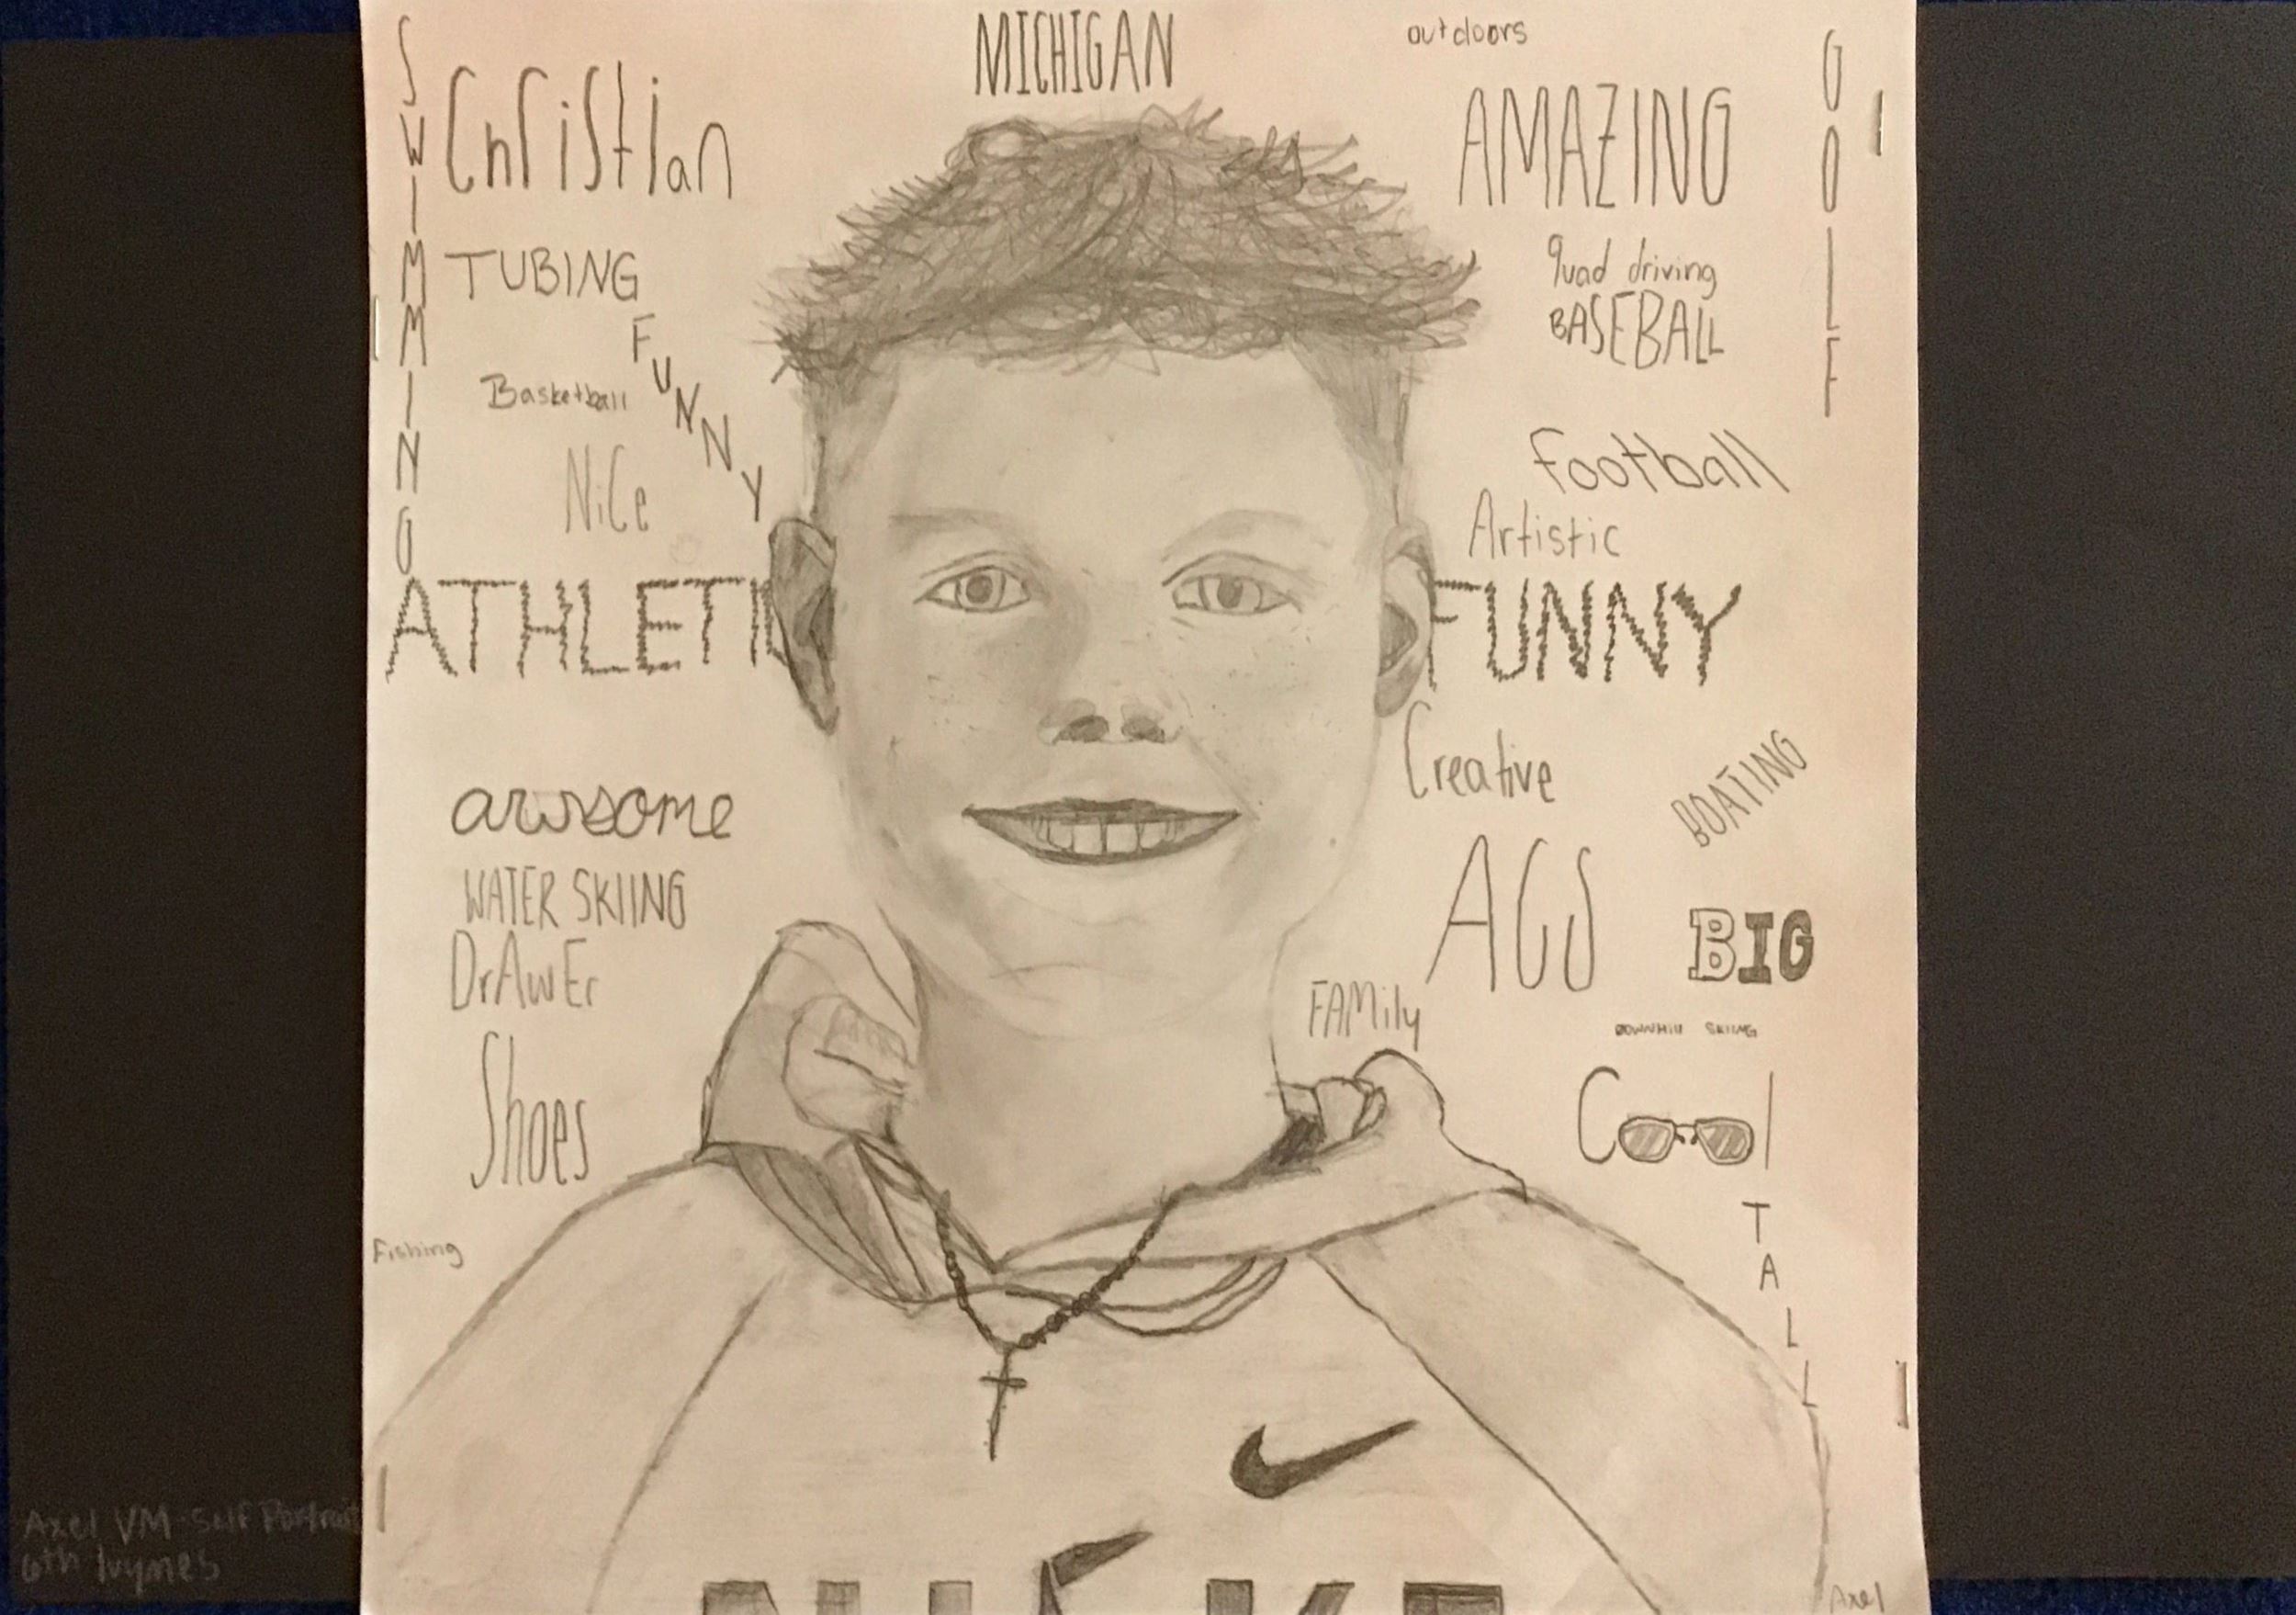 MICHIGAN
outdoors
SWIMMING
Christian
AMAZING
GOLF
TUBING
quad driving
BASEBALL
FUNNY
Basketball
football
Nice
Artistic
ATHLETIC
FUNNY
Creative
BOATING
awsome
WATER SKIING
ACS
BIG
DrAwEr
FAMily
DOWNHill SKIING
Shoes
Cool
TALL
Fishing
NIKE
Axel VM-Self Portrait
6th
Axel